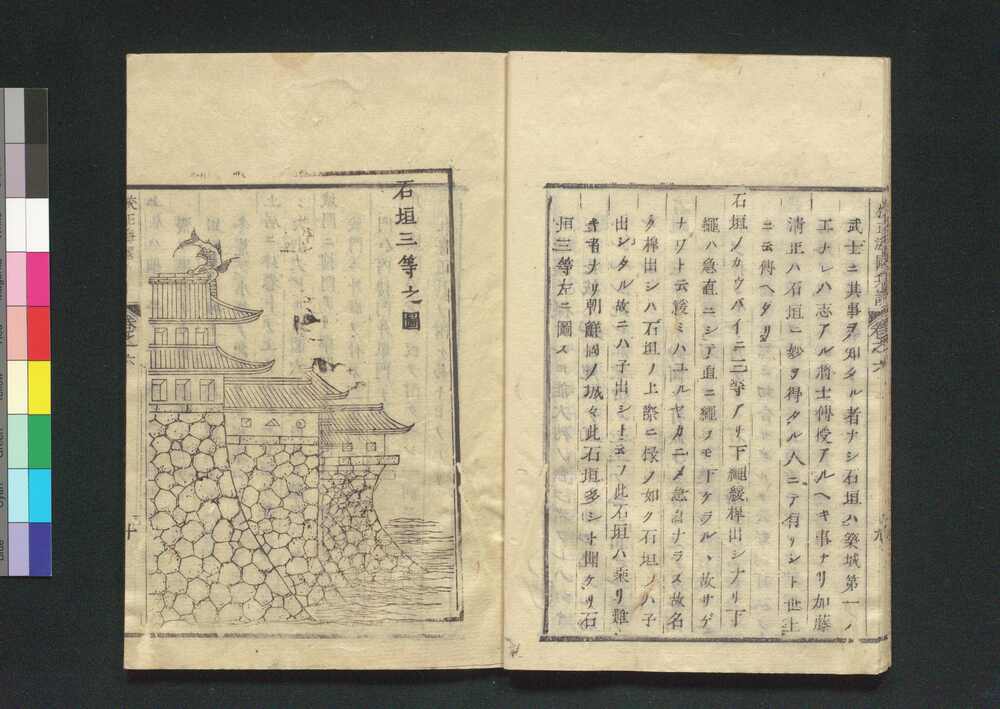 武士ニ其事ヲ知タル者ナシ石垣ハ築城第一ノ
エナレハ志アル將士傳授アルヘキ事ナリ加藤
淸正ハ石垣ニ妙ヲ得タル人ニテ有リシト世上
ニ云傳ヘタリ
石垣ノカウバイニ三等アリ下繩緩榫出シナリ下
繩ハ急直ニシテ直ニ繩ヲモ下ケラルヽ故サゲ
ナワト云緩ミハユルヤカニメ急ナラス故名
ク榫出シハ石垣ノ上際ニ ノ如ク石垣ノハ子
出シタル故ニハ子出シト云フ此石垣ハ乘リ難
キ者ナリ朝鮮國ノ城々此石垣多シト聞ケリ石
垣三等左ニ圖ス
卷之六
九
石垣三等之圖
卷之六
十